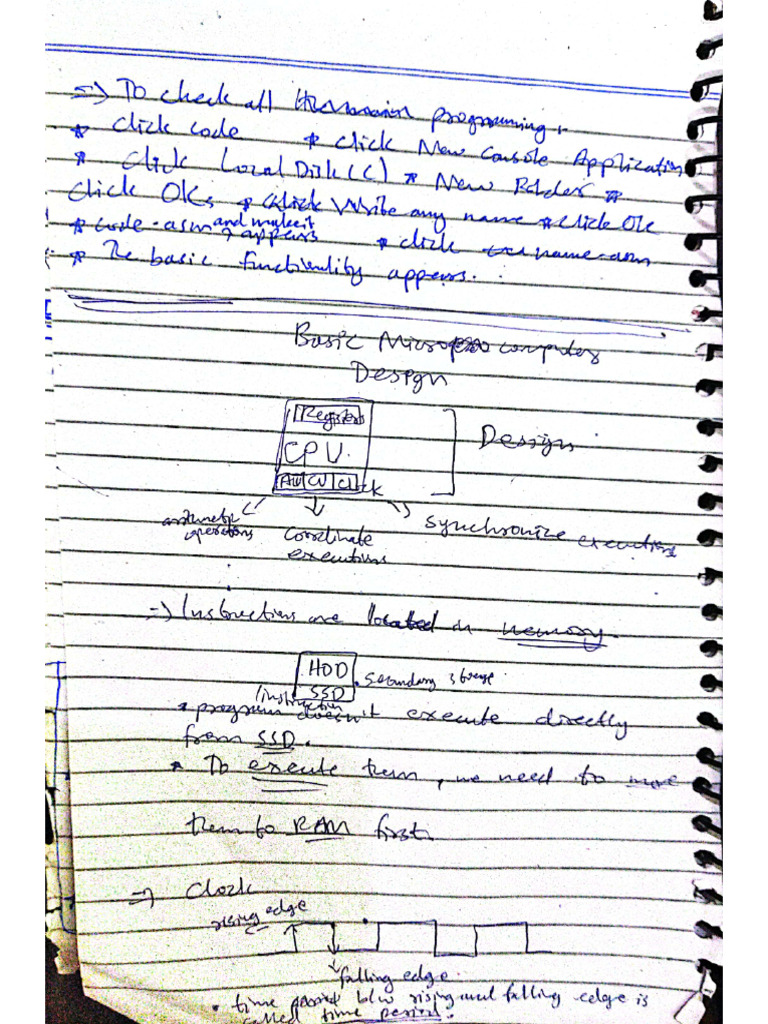 => To check all programming.
* Click code * Click New Console Application
* Click Local Disk (C) * New Folder *
Click OK, * Click Write any name * Click Ok
* code.asm and make it appears * click name.asm
* The basic functionality appears.
Basic Micro computer
Design
Registers
CPU
ALU CU Clock
Design
arithmetic operations
Coordinate executions
Synchronize executions
=> Instructions are located in memory.
HDD
SSD
Secondary storage
* program/instruction doesn't execute directly
from SSD.
* To execute them, we need to move
them to RAM first.
=> Clock
rising edge
falling edge
* time period b/w rising and falling edge is
called time period.